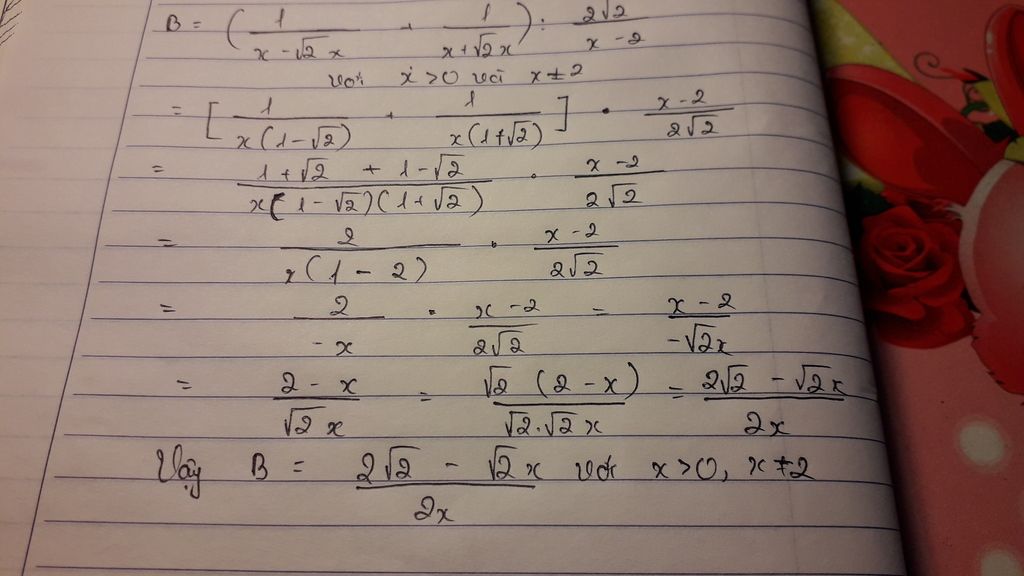 B = ( 1/(x - √2 x) + 1/(x + √2 x) ) : 2√2/(x - 2)
với x > 0 với x ≠ 2
= [ 1/(x(1 - √2)) + 1/(x(1 + √2)) ] · (x - 2)/(2√2)
= (1 + √2 + 1 - √2)/(x(1 - √2)(1 + √2)) · (x - 2)/(2√2)
= 2/(x(1 - 2)) · (x - 2)/(2√2)
= 2/(-x) · (x - 2)/(2√2) = (x - 2)/(-√2x)
= (2 - x)/(√2 x) = (√2 (2 - x))/(√2.√2 x) = (2√2 - √2x)/(2x)
Vậy B = (2√2 - √2 x)/(2x) với x > 0, x ≠ 2